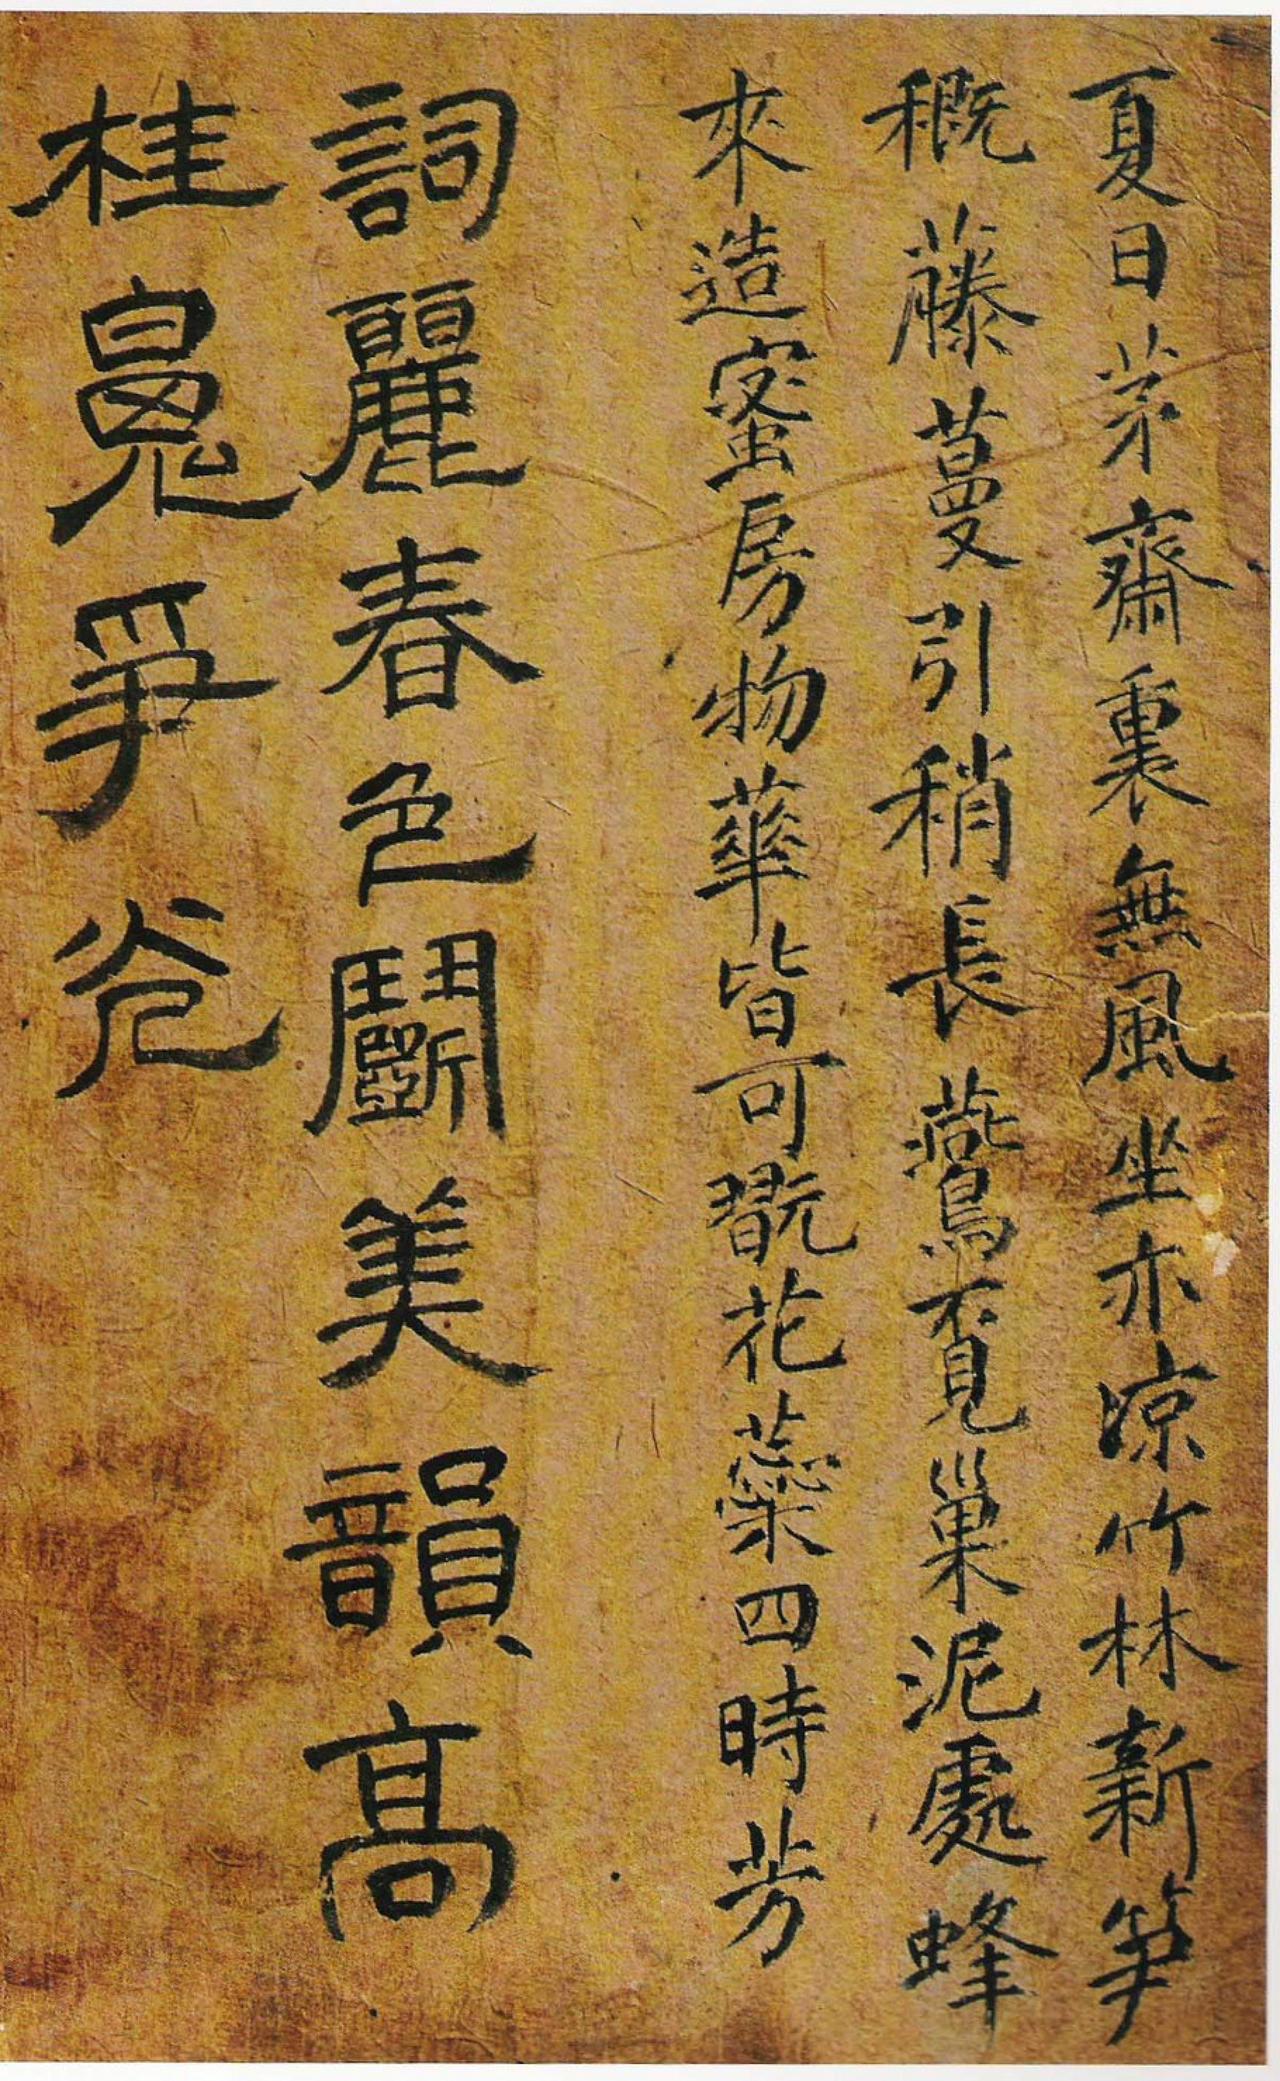 夏日茅齋裏無風坐亦凉竹林新笋
穊藤蔓引稍長鷰覔巢泥處蜂
來造蜜房物華皆可翫花蘂四時芳
詞麗春色鬭美韻高
桂爭光